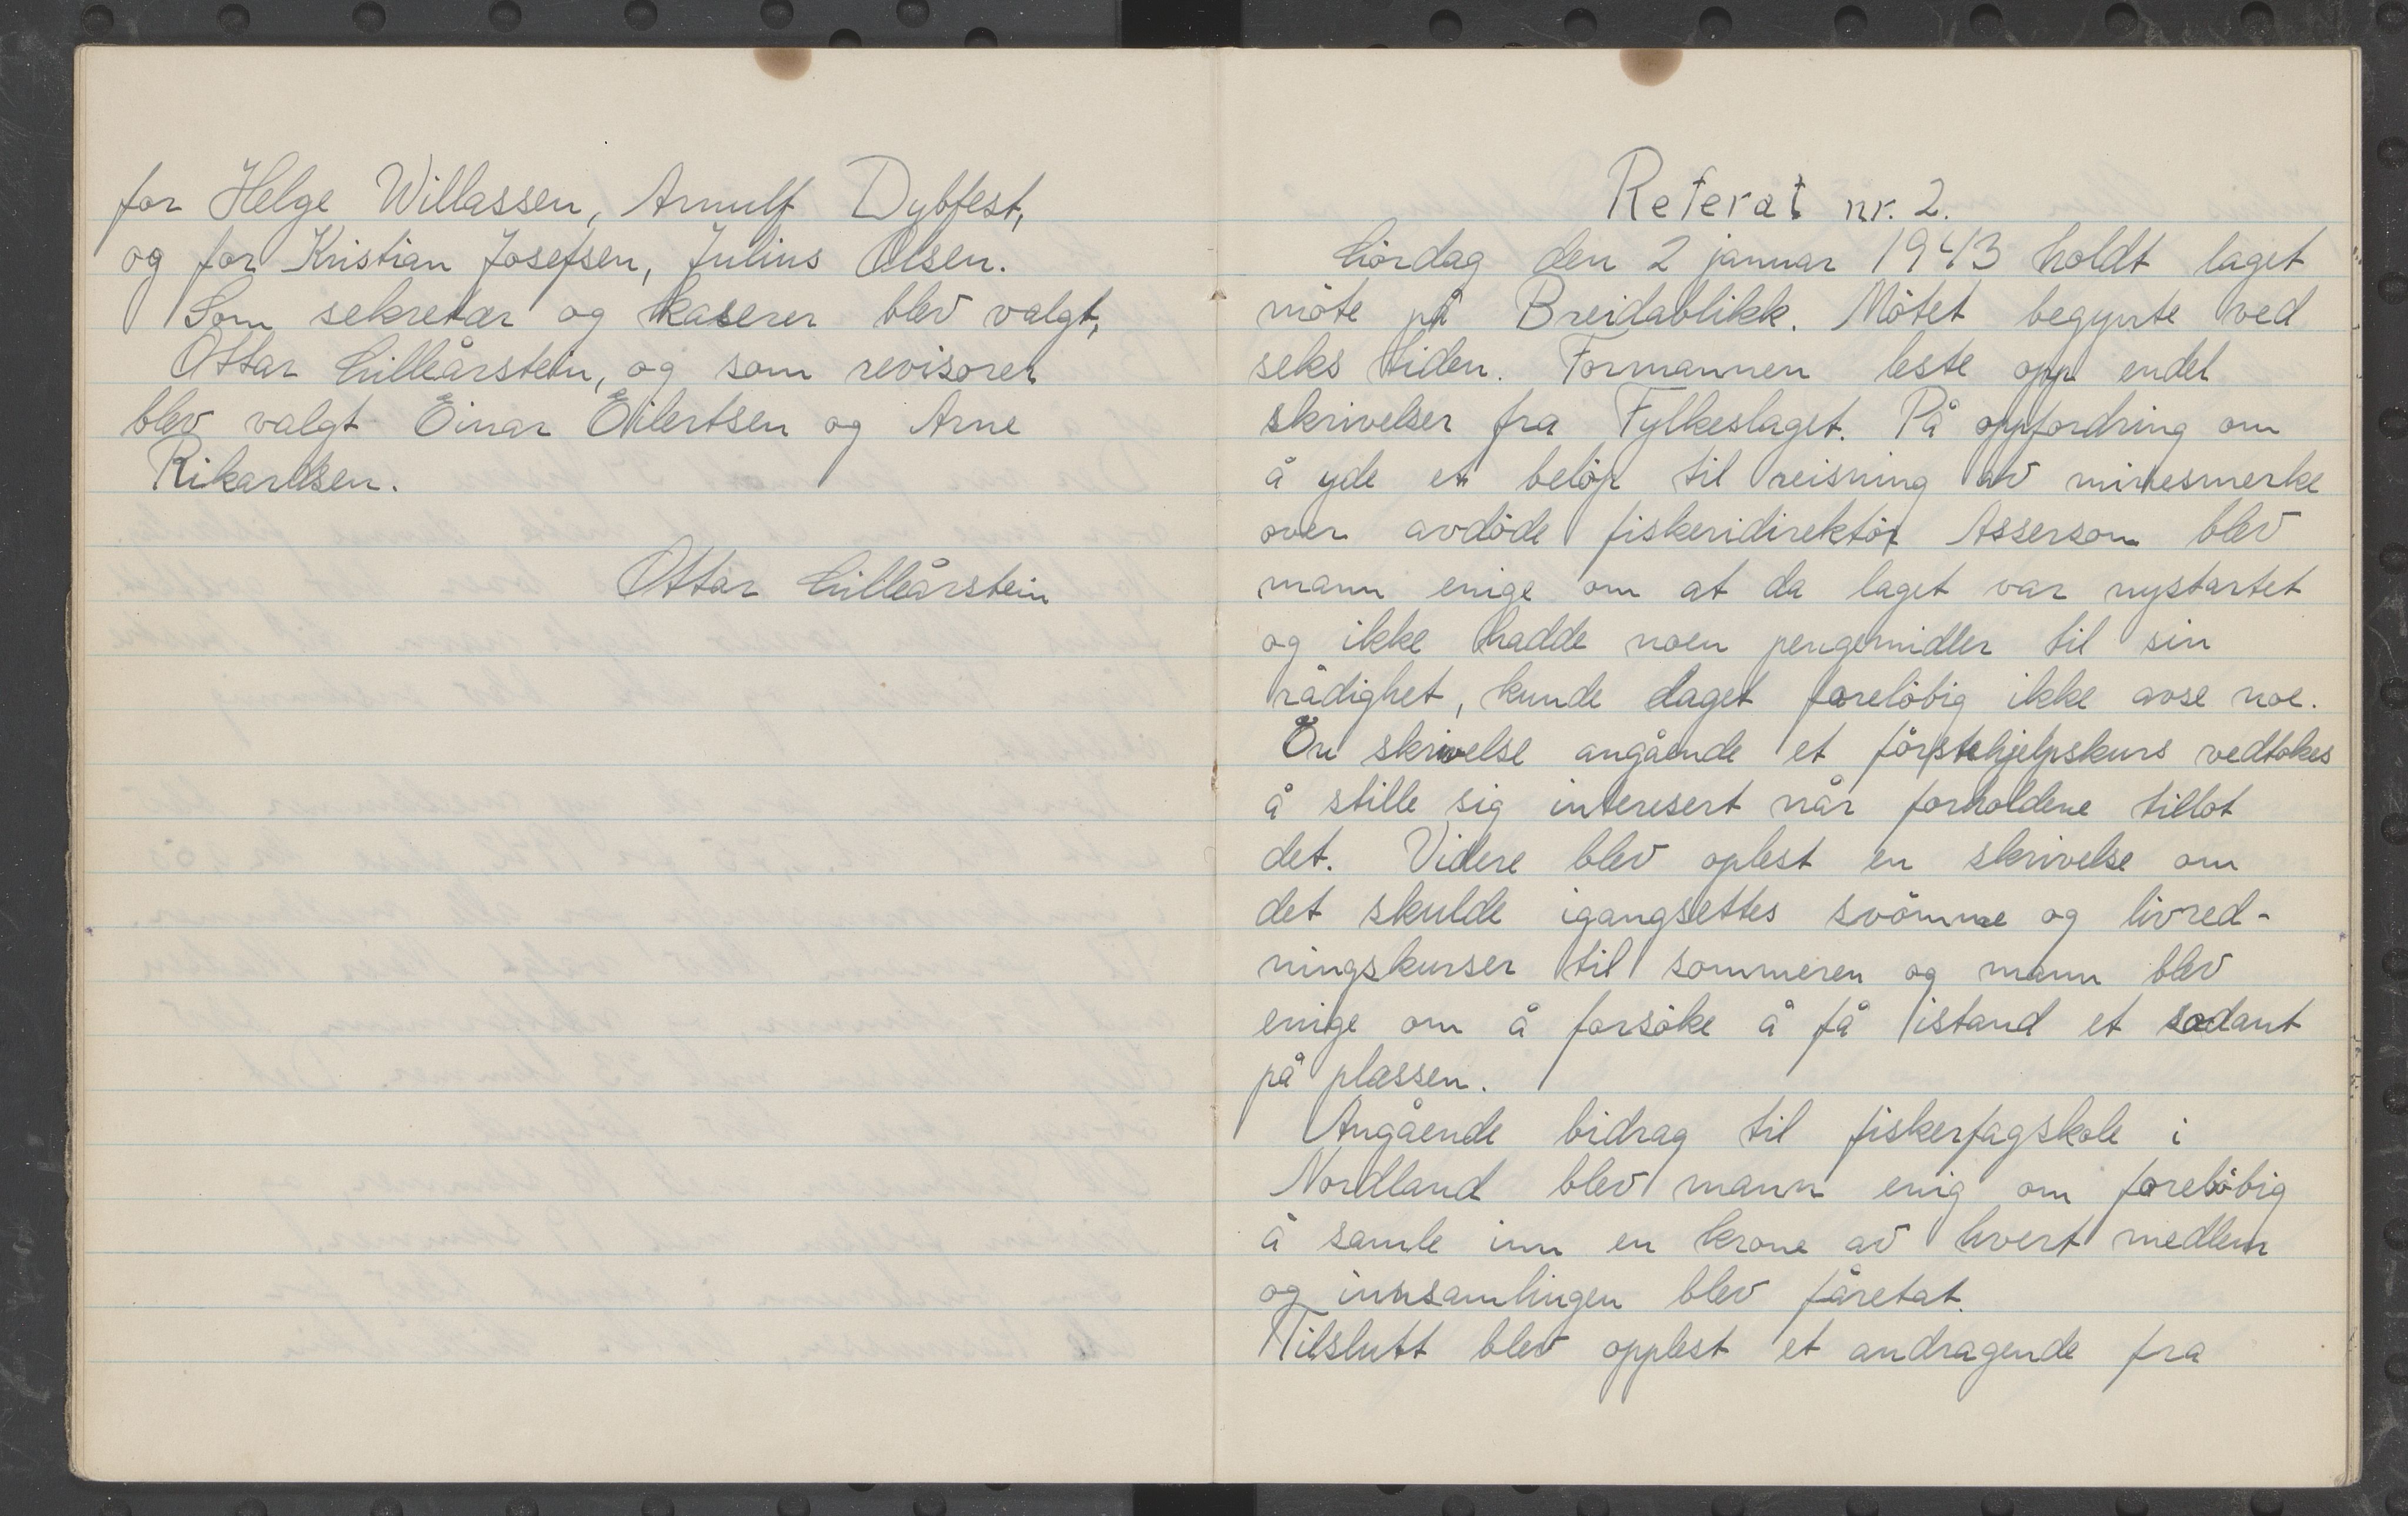 for Helge Willassen, Arnulf Dybfest,
og for Kristian Josefsen, Julius Olsen.
Som sekretær og kaserer blev valgt,
Ottar Lilleårstein, og som revisorer
blev valgt Einar Eilertsen og Arne
Rikardsen.
Ottar Lilleårstein
Referat nr. 2.
Lördag den 2 januar 1943 holdt laget
möte på Breidablikk. Mötet begynte ved
seks tiden. Formannen leste opp endel
skrivelser fra Fylkeslaget. På oppfordring om
å yde et belöp til reisning av minesmerke
over avdöde fiskeridirektör Asserson blev
mann enige om at da laget var nystartet
og ikke hadde noen pengemidler til sin
rådighet, kunde laget forelöbig ikke avse noe.
En skrivelse angående et förstehjelpskurs vedtokes
å stille sig interesert når forholdene tillot
det. Videre blev oplest en skrivelse om
det skulde igangsettes svömme og livred-
ningskurser til sommeren og mann blev
enige om å forsöke å få istand et sodant
på plassen.
Angående bidrag til fiskerfagskole i
Nordland blev mann enig om forelöbig
å samle inn en krone av hvert medlem
og innsamlingen blev fåretat.
Tilslutt blev opplest et andragende fra